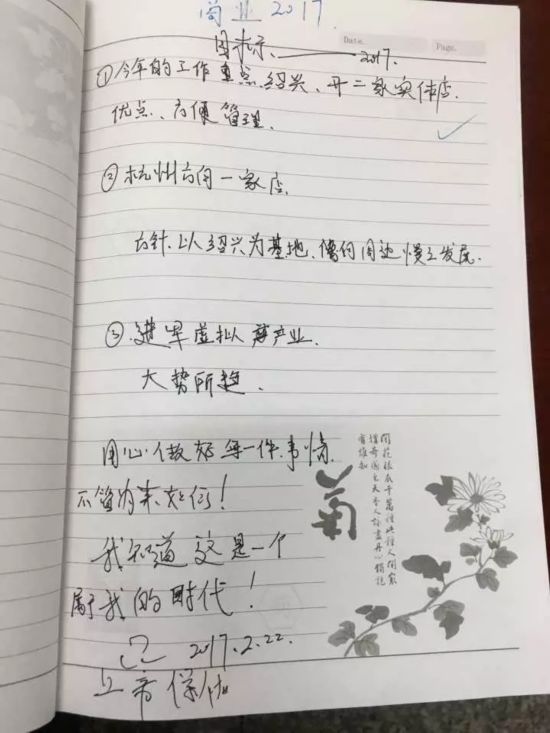 商业 2017
目标、——2017.
Date.
Page.
①今年的工作重点.绍兴、开二家实体店.
优点、方便管理.
②杭州方向一家店.
方针.以人绍兴为基地、慢向周边慢之发展.
③.进军虚拟产业.
大势所趋.
用心做好每一件事情.
不管未来如何!
我知道这是一个
属于我的时代!
2017.2.22.
上帝保佑
菊